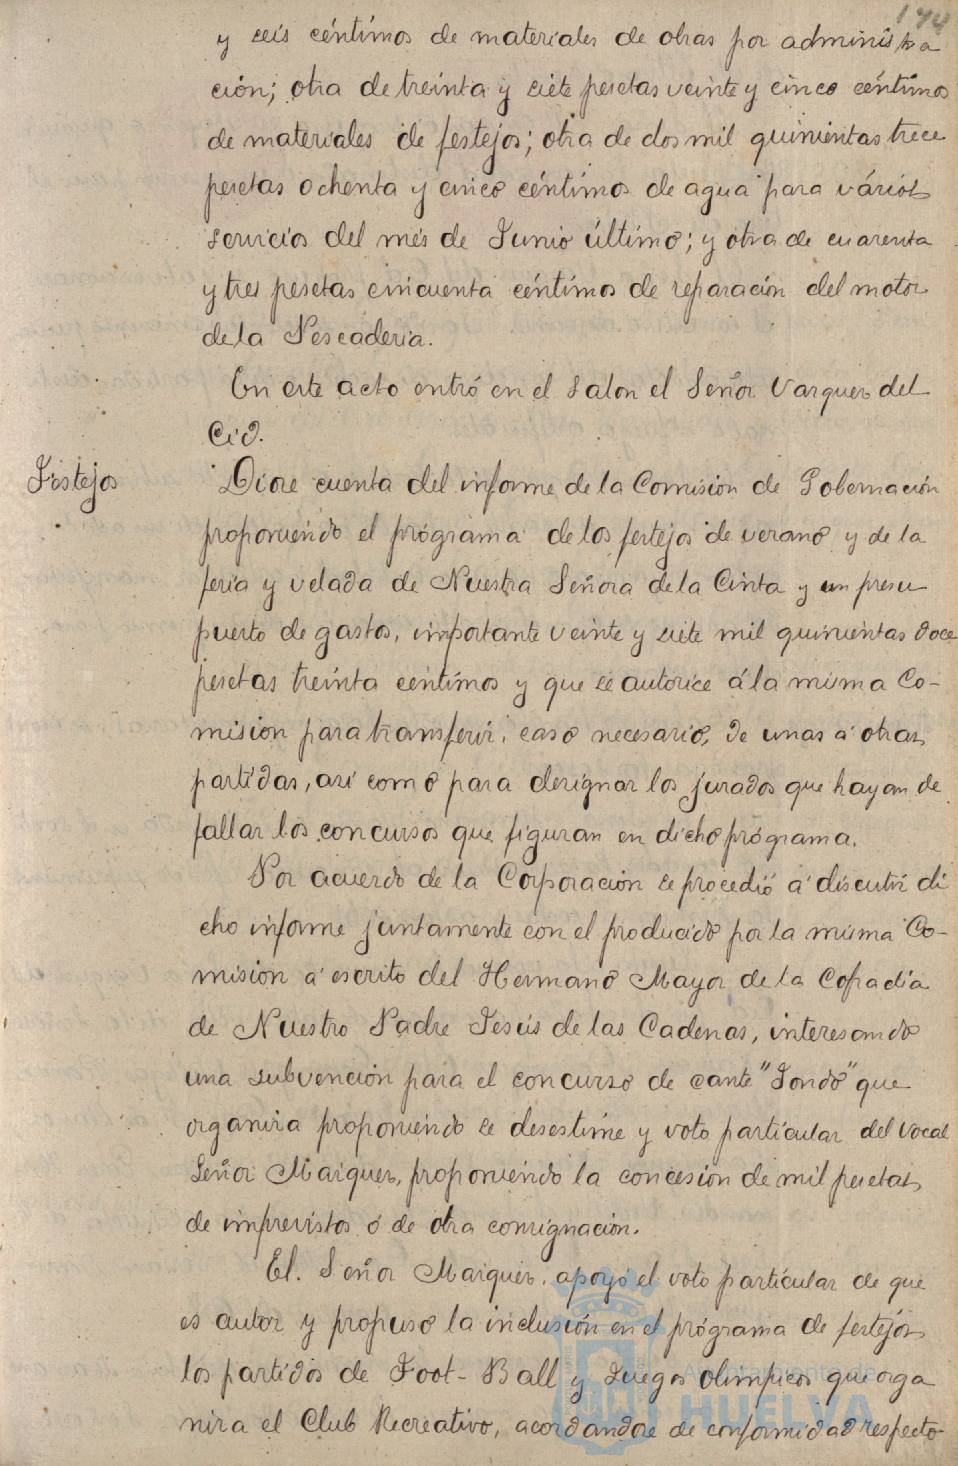 174
y seis céntimos de materiales de obras por administra
ción; otra de treinta y siete pesetas veinte y cinco céntimos
de materiales de festejos; otra de dos mil quinientas trece
pesetas ochenta y cinco céntimos de agua para vários
servicios del mes de Junio último; y otra de cuarenta
y tres pesetas cincuenta céntimos de reparación del motor
de la Pescaderia.
En este acto entró en el salon el Señor Vazquez del
Cid.
Festejos
Diose cuenta del informe de la Comision de Gobernación
proponiendo el prógrama de los festejos de verano y de la
feria y velada de Nuestra Señora de la Cinta y un presu
puesto de gastos, importante veinte y siete mil quinientas doce
pesetas treinta centimos y que se autorice á la misma Co-
mision para transferir, caso necesario, de unas á otras
partidas, asi como para designar los jurados que hayan de
fallar los concursos que figuran en dicho prógrama.
Por acuerdo de la Corporación se procedió á discutir di
cho informe juntamente con el producido por la misma Co-
misión á escrito del Hermano Mayor de la Cofradia
de Nuestro Padre Jesús de las Cadenas, interesando
una subvención para el concurso de cante "Jondo" que
organiza proponiendo se desestime y voto particular del Vocal
Señor Maiquez, proponiendo la concesión de mil pesetas
de imprevistos ó de otra consignación.
El Señor Maiquez, apoyó el voto particular de que
es autor y propuso la inclusión en el prógrama de festejos
los partidos de Foot-Ball y Juegos olimpicos que orga
niza el Club Recreativo, acordandose de conformidad respecto
Ayuntamiento de
HUELVA